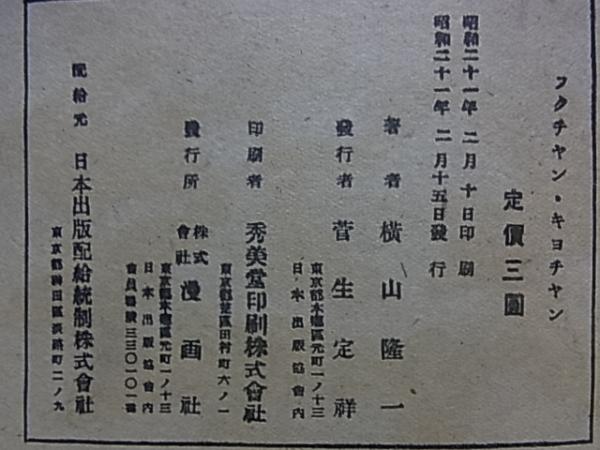 フクチヤン・キヨチヤン
定價三圓
昭和二十一年 二月 十日印刷
昭和二十一年 二月十五日發行
著者 横山隆一
發行者 菅生定祥
東京都本鄕區元町一ノ十三
日本出版協會内
印刷者 秀美堂印刷株式會社
東京都芝區田村町六ノ一
發行所 株式會社 漫画社
東京都本鄕區元町一ノ十三
日本出版協會内
會員番號三三〇一〇一番
配給元 日本出版配給統制株式會社
東京都神田區淡路町二ノ九